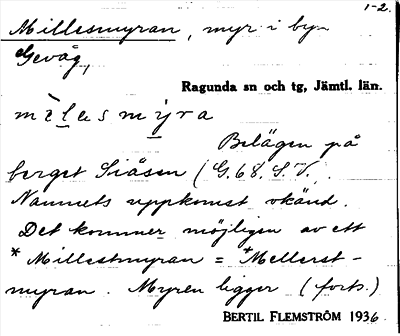 1-2.
Millesmyran, myr i byn
Gevåg,
Ragunda sn och tg, Jämtl. län.
mìlesmýra
Belägen på
berget Siåsen (G.68.S.V.
Namnets uppkomst okänd.
Det kommer möjligen av ett
*Millestmyran = *Mellerst-
myran. Myren ligger (forts.)
BERTIL FLEMSTRÖM 1936